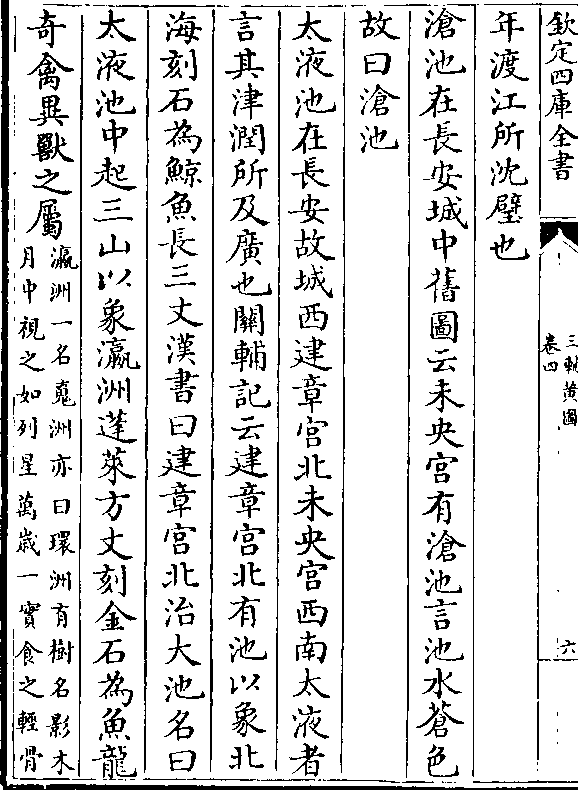 欽定四庫全書
三輔黃圖
卷四
六
年渡江所沈璧也
滄池在長安城中舊圖云未央宮有滄池言池水蒼色
故曰滄池
太液池在長安故城西建章宮北未央宮西南太液者
言其津潤所及廣也關輔記云建章宮北有池以象北
海刻石為鯨魚長三丈漢書曰建章宮北治大池名曰
太液池中起三山以象瀛洲蓬萊方丈刻金石為魚龍
奇禽異獸之屬
瀛洲一名䰟洲亦曰環洲有樹名影木
月中視之如列星萬歲一實食之輕骨